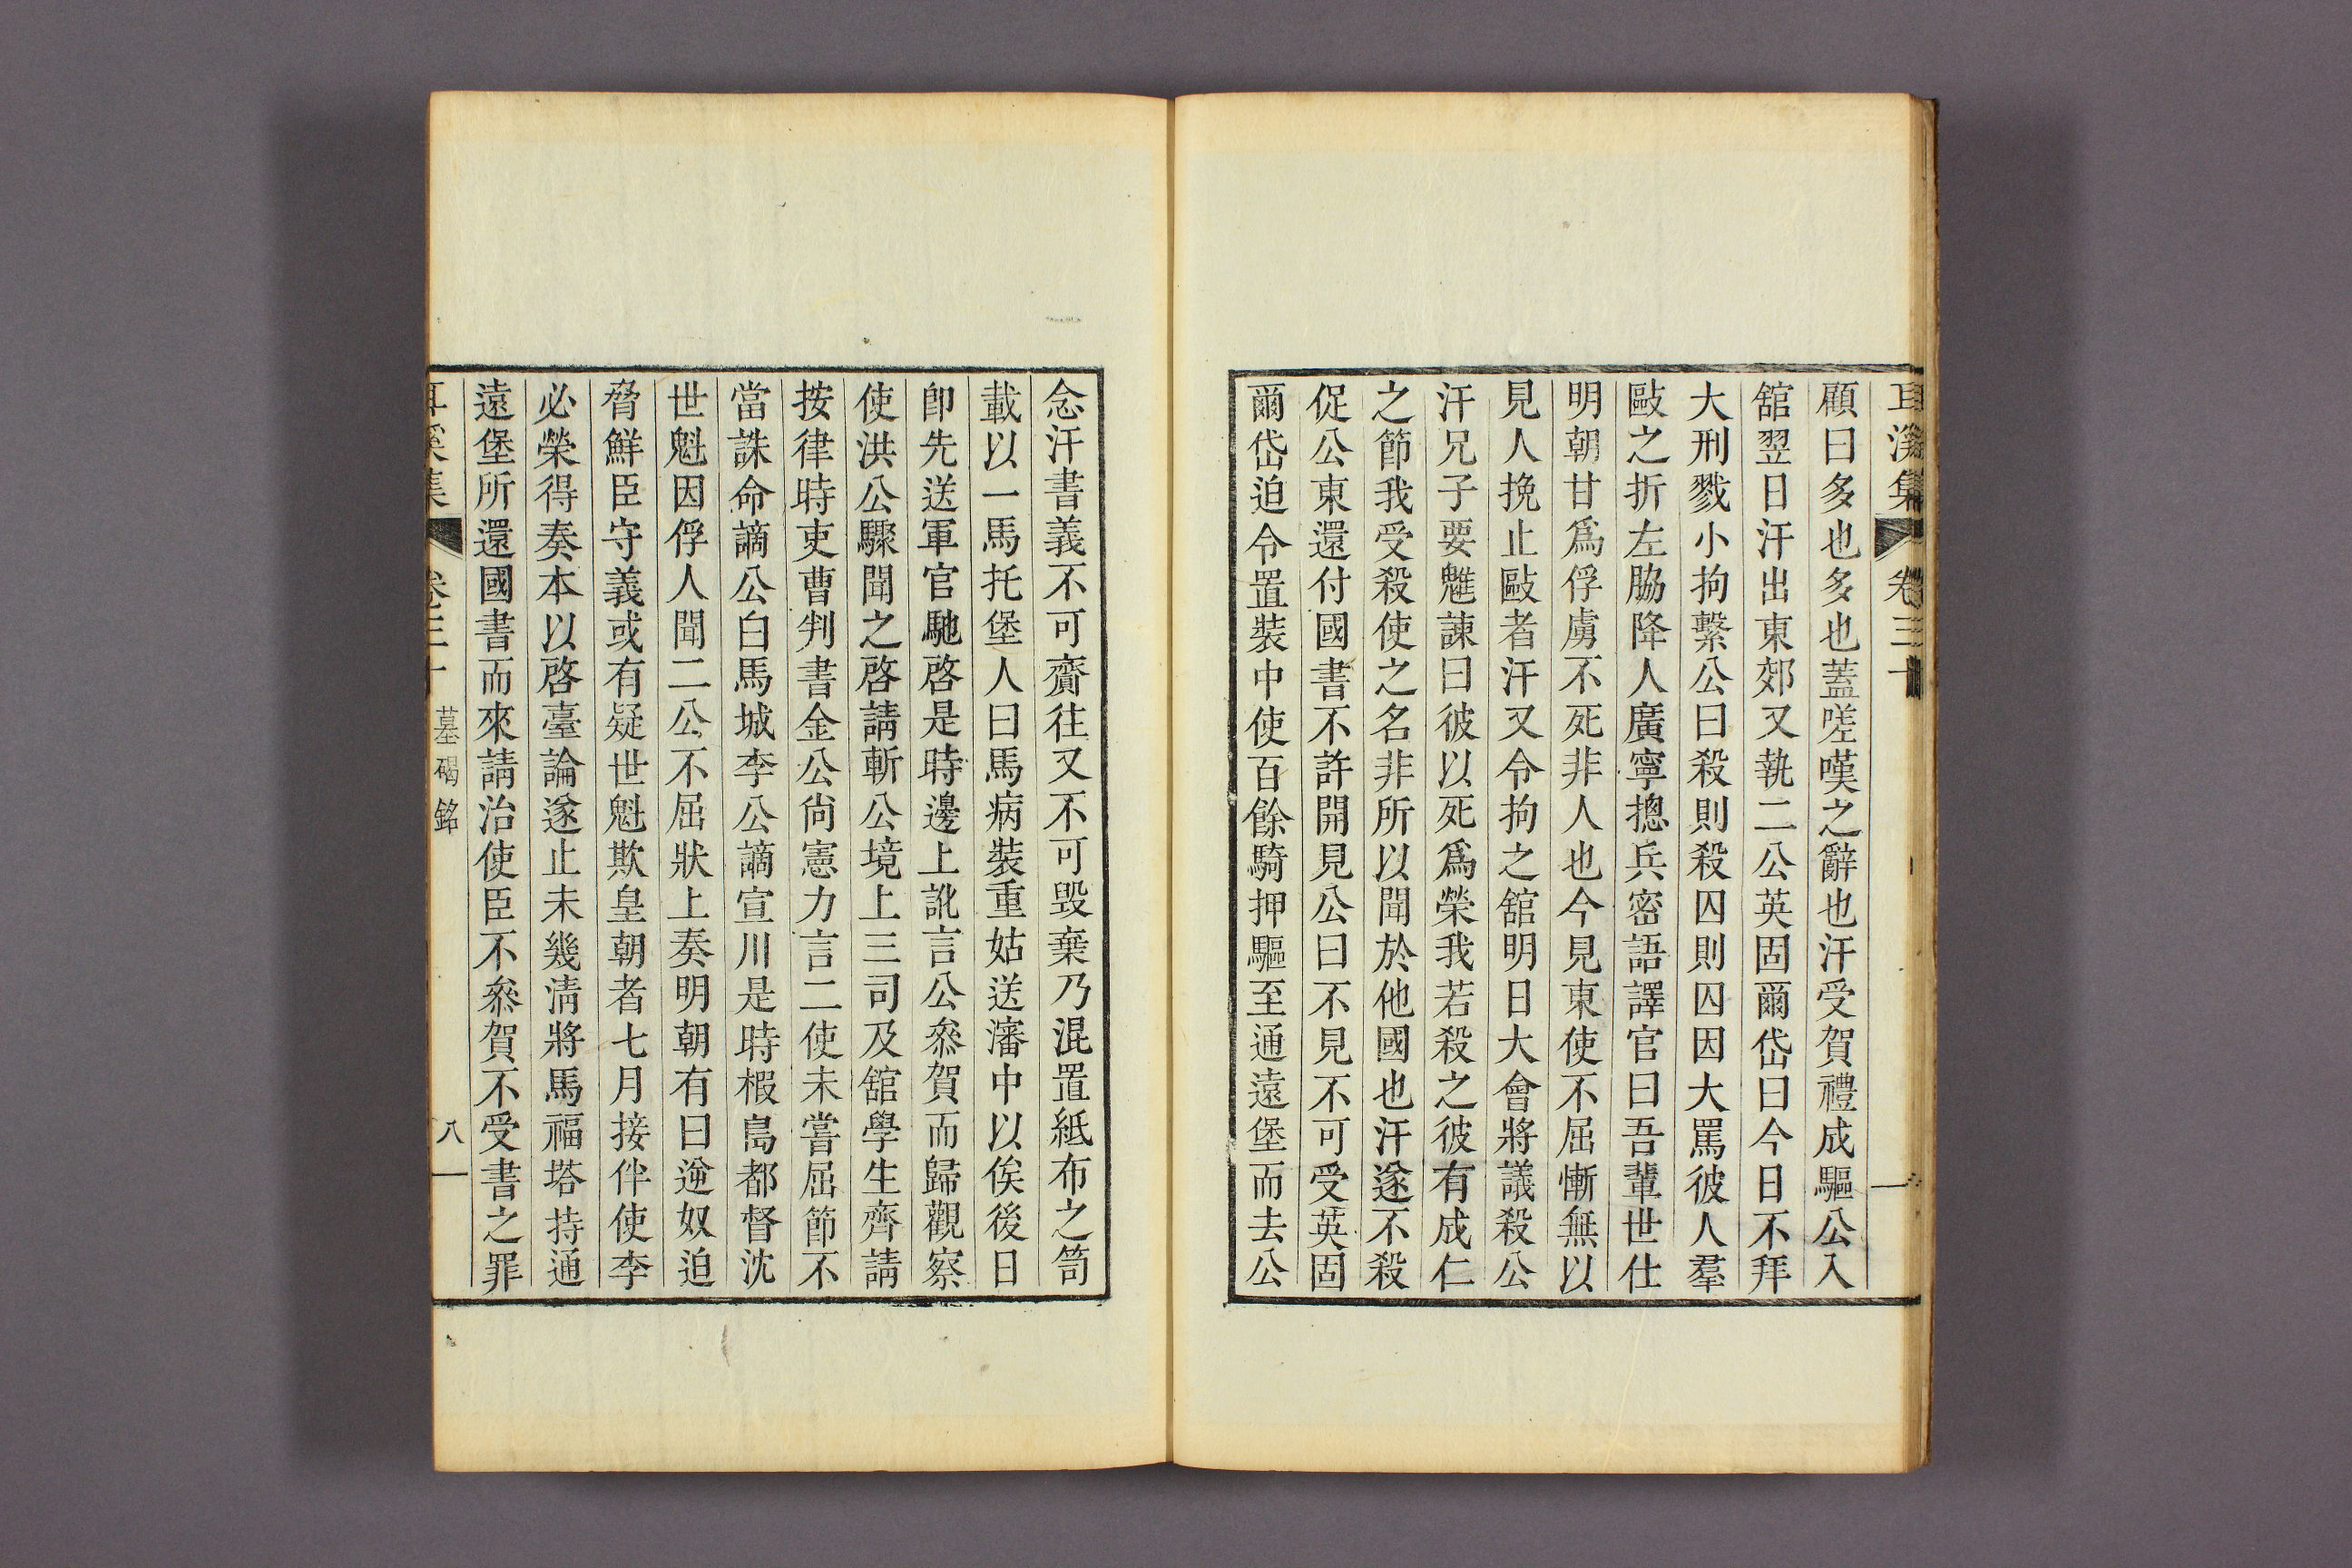 耳溪集 卷三十
顧曰多也多也蓋嗟嘆之辭也汗受賀禮成驅公入
舘翌日汗出東郊又執二公英固爾岱曰今日不拜
大刑戮小拘繫公曰殺則殺囚則囚因大罵彼人羣
毆之折左脇降人廣寧摠兵密語譯官曰吾輩世仕
明朝甘爲俘虜不死非人也今見東使不屈慚無以
見人挽止毆者汗又令拘之舘明日大會將議殺公
汗兄子要魋諫曰彼以死爲榮我若殺之彼有成仁
之節我受殺使之名非所以聞於他國也汗遂不殺
促公東還付國書不許開見公曰不見不可受英固
爾岱迫令置裝中使百餘騎押驅至通遠堡而去公
念汗書義不可齎往又不可毀棄乃混置紙布之笥
載以一馬托堡人曰馬病裝重姑送瀋中以俟後日
卽先送軍官馳啓是時邊上訛言公叅賀而歸觀察
使洪公驟聞之啓請斬公境上三司及舘學生齊請
按律時吏曹判書金公尙憲力言二使未嘗屈節不
當誅命謫公白馬城李公謫宣川是時椵島都督沈
世魁因俘人聞二公不屈狀上奏明朝有曰逆奴迫
脅鮮臣守義或有疑世魁欺皇朝者七月接伴使李
必榮得奏本以啓臺論遂止未幾淸將馬福塔持通
遠堡所還國書而來請治使臣不叅賀不受書之罪
耳溪集 卷三十 墓碣銘 八